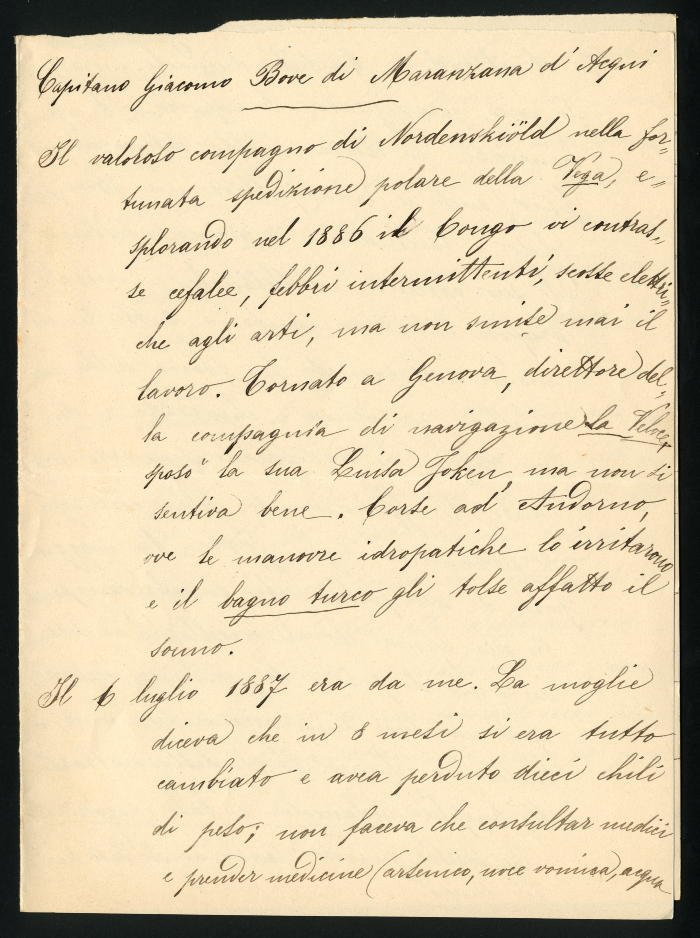 Capitano Giacomo Bove di Maranzana d'Acqui
Il valoroso compagno di Nordenskiöld nella for=
tunata spedizione polare della Vega, e=
splorando nel 1886 il Congo vi contras=
se cefalee, febbri intermittenti, scosse elettri=
che agli arti, ma non smise mai il
lavoro. Tornato a Genova, direttore del=
la compagnia di navigazione la Veloce,
sposò la sua Luisa Joken, ma non si
sentiva bene. Corse ad Andorno,
ove le manovre idropatiche lo irritarono
e il bagno turco gli tolse affatto il
sonno.
Il 6 luglio 1887 era da me. La moglie
diceva che in 8 mesi si era tutto
cambiato e avea perduto dieci chili
di peso; non faceva che consultar medici
e prender medicine (arsenico, noce vomica, acqua